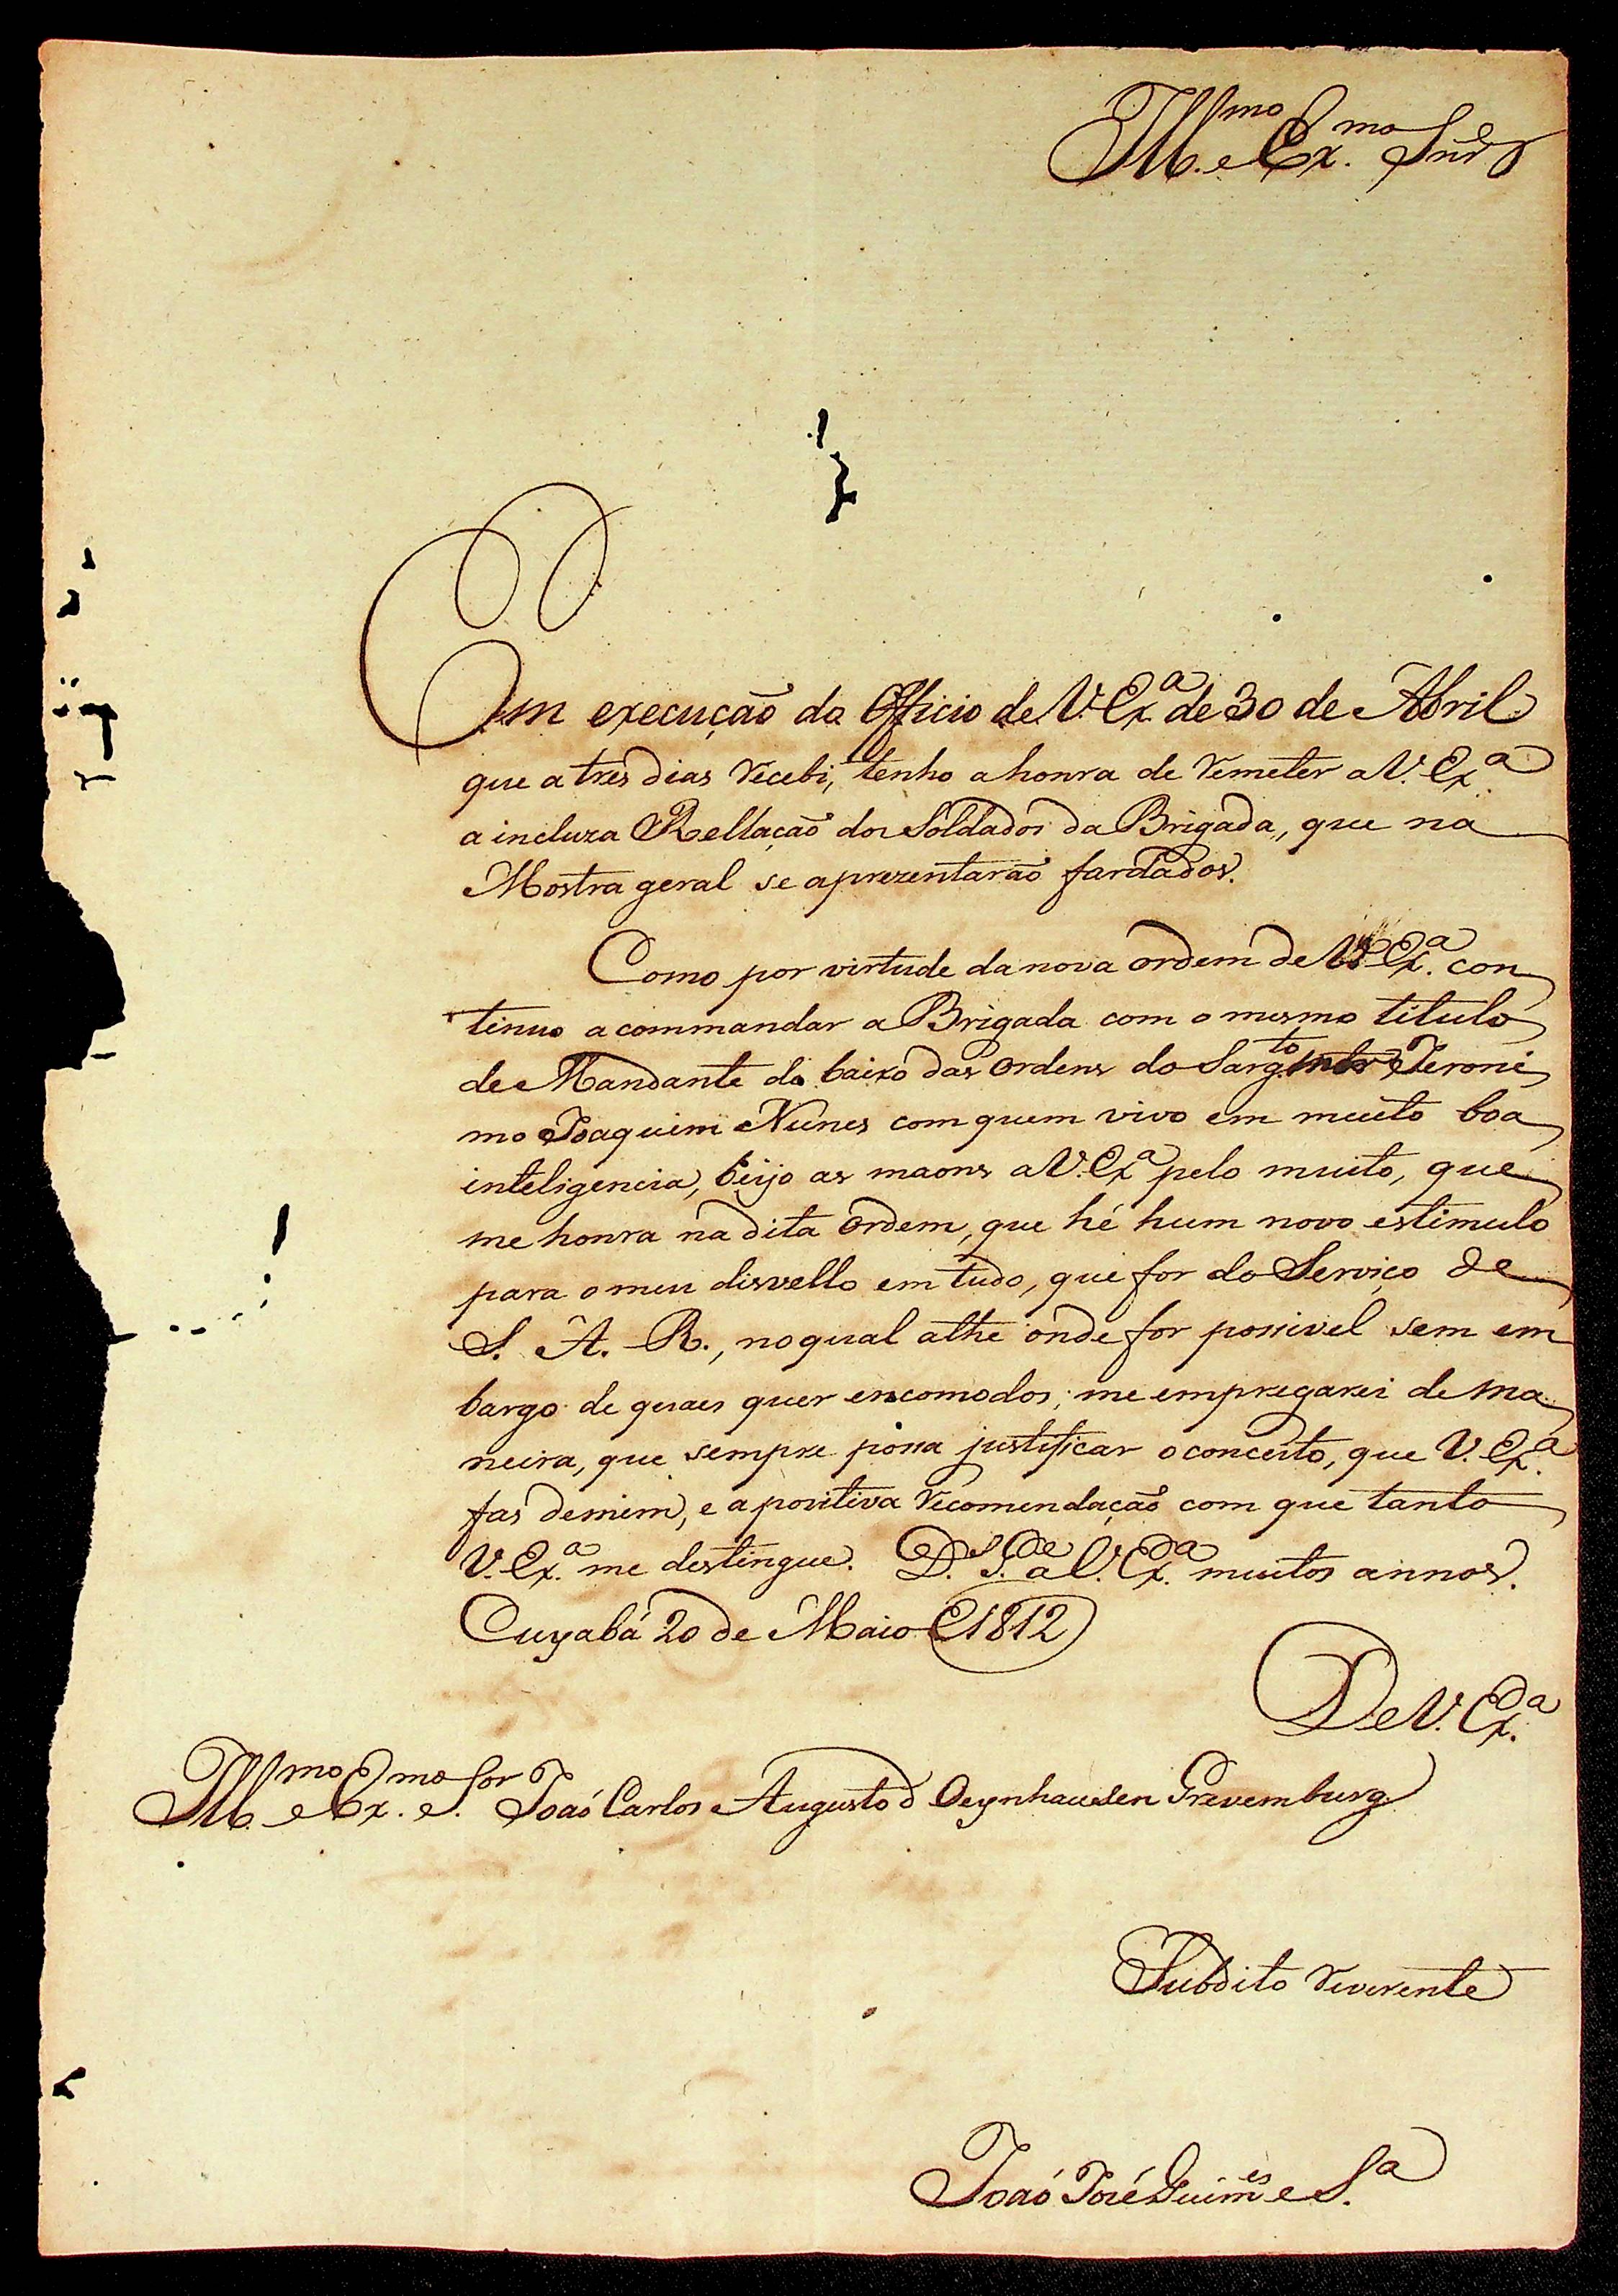 Ill.mo e Ex.mo Snr
Em execução do Officio de V. Ex.a de 30 de Abril
que a tres dias recebi, tenho a honra de remeter a V. Ex.a
a incluza Rellação dos Soldados da Brigada, que na
Mostra geral se aprezentarão fardados.
Como por virtude da nova ordem de V. Ex.a con
tinuo a commandar a Brigada com o mesmo titulo
de Mandante de baixo das ordens do Sarg.to mor Jeroni
mo Joaquim Nunes com quem vivo em muito boa
inteligencia, beijo as maons a V. Ex.a pelo muito, que
me honra na dita ordem, que hé hum novo estimulo
para o meu disvello em tudo, que for do Serviço de
S. A. R., no qual athe onde for possivel sem em
bargo de quaes quer encomodos, me empregarei de ma
neira, que sempre possa justificar o conceito, que V. Ex.a
fas de mim, e a positiva recomendação com que tanto
V. Ex.a me destingue. D.s G.de a V. Ex.a muitos annos.
Cuyabá 20 de Maio de 1812
De V. Ex.a
Ill.mo e Ex.mo S.or João Carlos Augusto d Oeynhausen Grevemburg
Subdito reverente
João José Guim.es e S.a